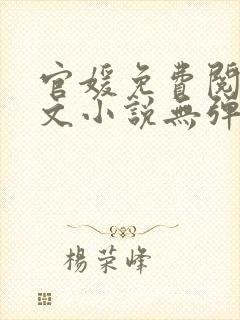 官媛免費閱
文小說無彈
楊荣峰